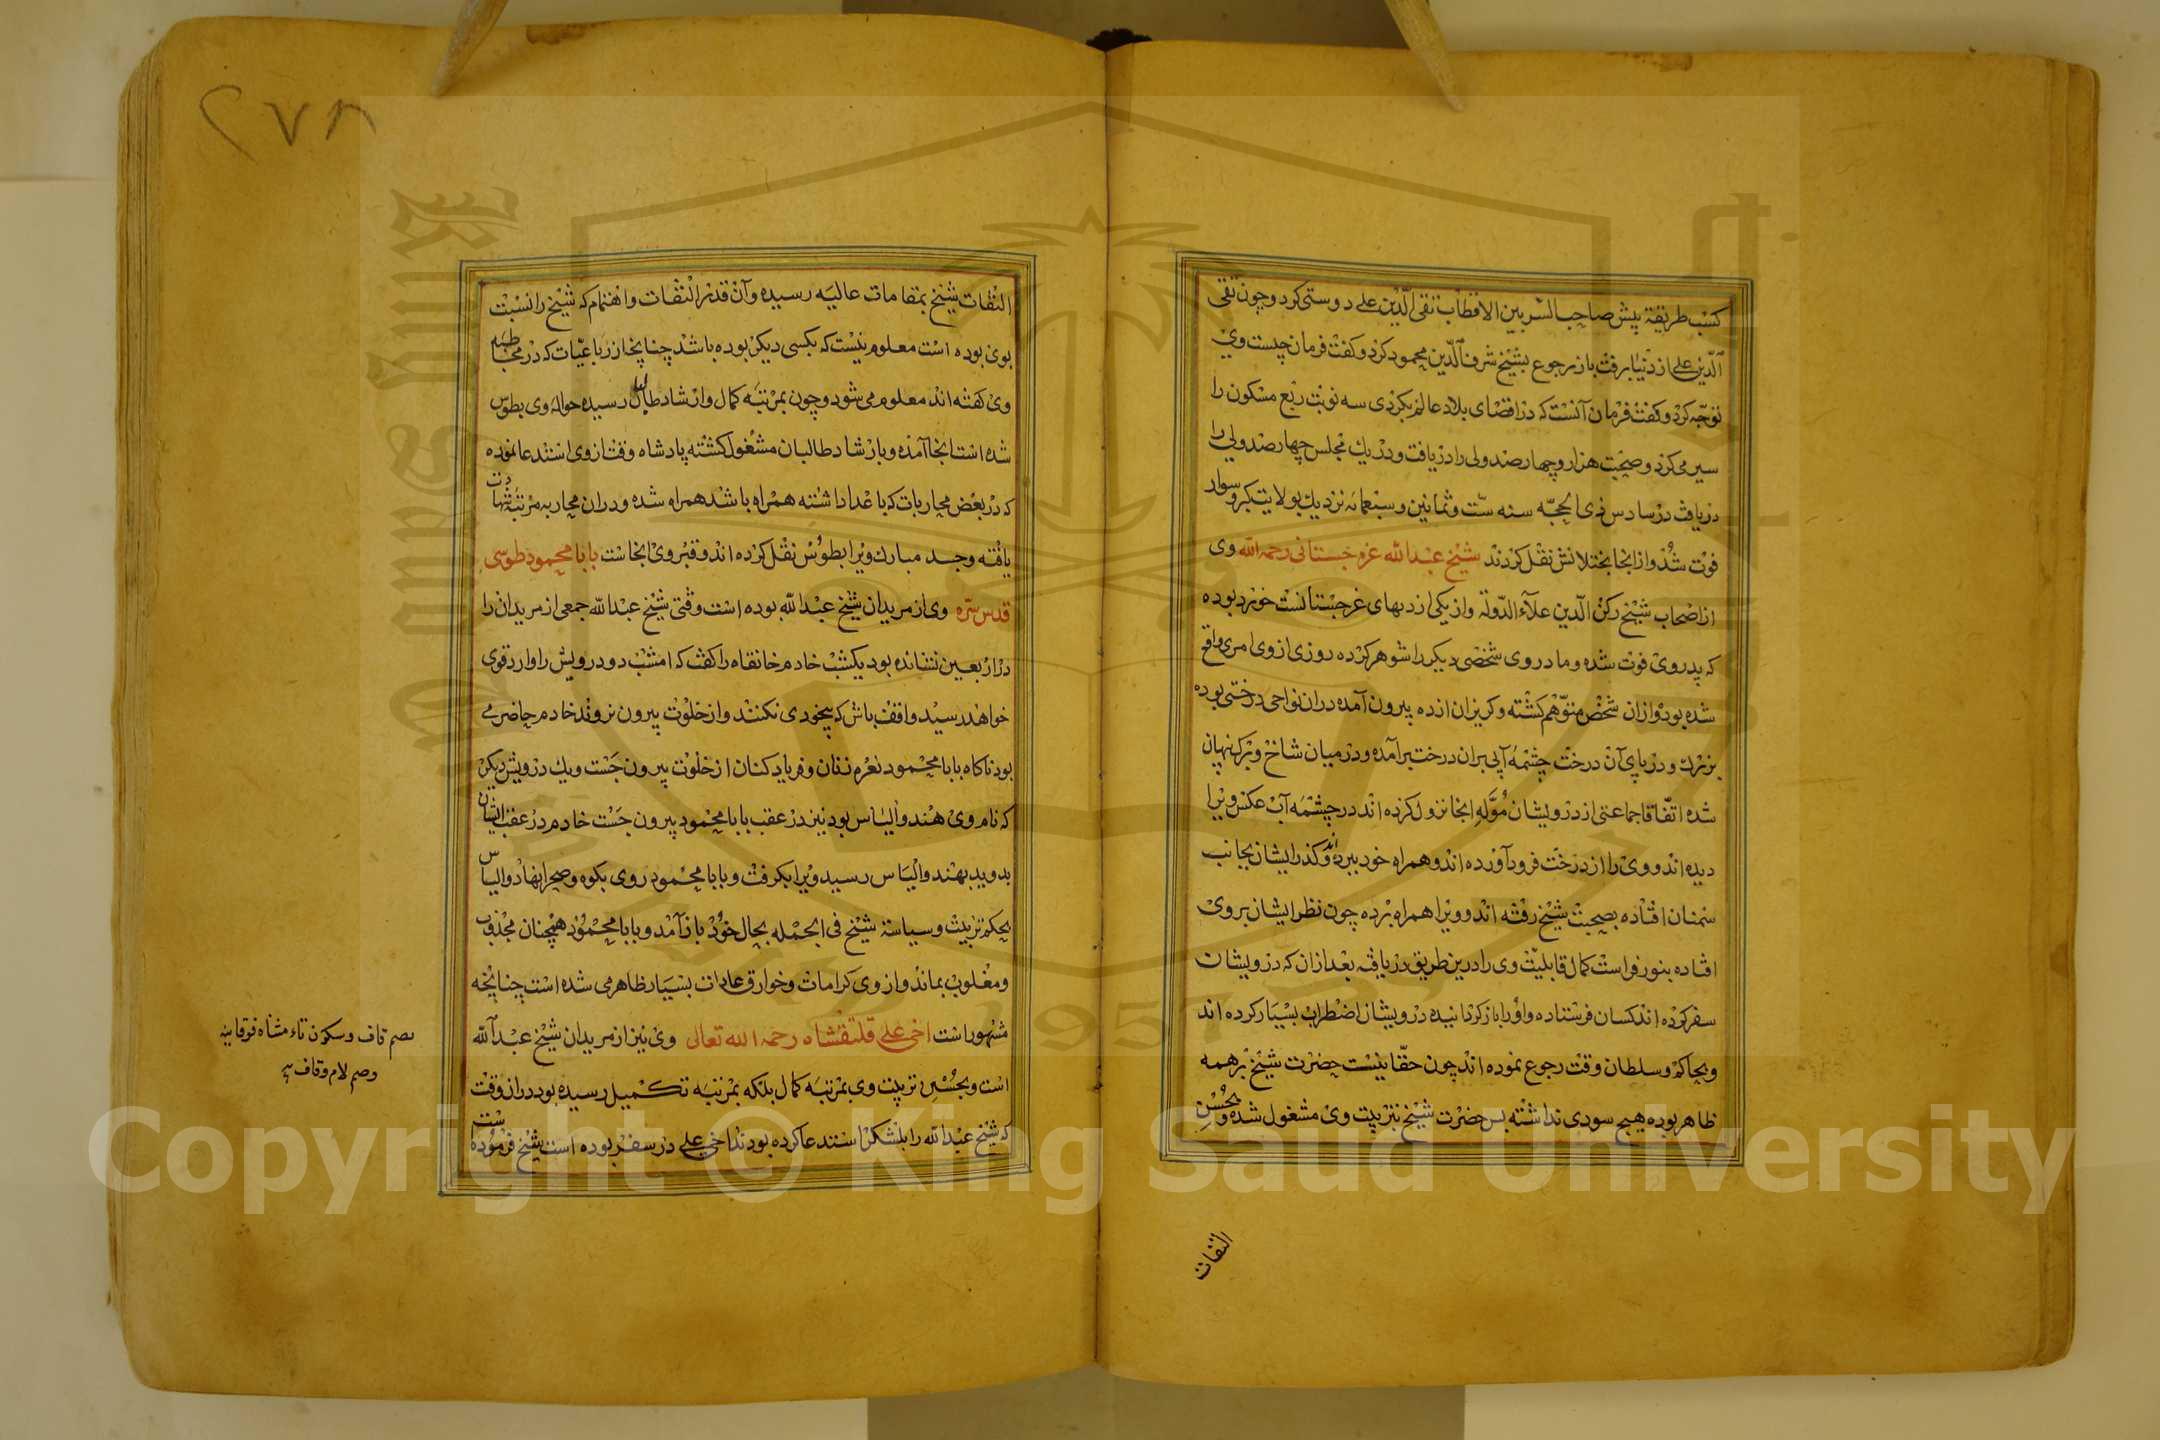 كسب طريقة پيش صاحب السّر بين الاقطاب تقى الدّين على دوستى كرد و چون تقى
الدّين على از دنيا برفت باز رجوع بشيخ شرف الدّين محمود كرد و كفت فرمان چيست وي
توجّه كرد و كفت فرمان آنست كه در اقصاى بلاد عالم بكردى سه نوبت ربع مسكون را
سير مى كرد و صحبت هزار و چهار صد ولى را دريافت و در يك مجلس چهار صد ولى را
دريافت در سادس ذى الحجّه سنه ستّ و ثمانين و سبعمائه نزديك بولايت كبر و سواد
فوت شد و از انجا بختلانش نقل كردند شيخ عبد الله غرجستانى رحمه الله وى
از اصحاب شيخ ركن الدّين علآء الدّولة و از يكى از دبهاى غرجستانست خورد بوده
كه پدر وى فوت شده و مادر وى شخصى ديكر را شوهر كرده روزى از وى امرى واقع
شده بود و از ان شخص متوّهم كشته و كريزان از ده بيرون آمده در ان نواحى درختى بوده
بزرك و در پاى آن درخت چشمه آبى بر ان درخت برآمده و در ميان شاخ و برك نهان
شده اتّفاقا جماعتى از درويشان مُولّه انجا نزول كرده اند در چشمه آب عكس ويرا
ديده اند و وى را از درخت فرود آورده اند و همراه خود ببرده اند و كذر ايشان بجانب
سمنان افتاده بصحبت شيخ رفته اند و ويرا همراه برده چون نظر ايشان بر وى
افتاده بنور فراست كمال قابليّت وى را درين طريق دريافته بعد از ان كه درويشان
سفر كرده اند كسان فرستاده و او را باز كردانيده درويشان اضطراب بسيار كرده اند
و بحاكم و سلطان وقت رجوع نموده اند چون حقّانيست حضرت شيخ بر همه
ظاهر بوده هيچ سودى نداشته پس حضرت شيخ بتربيت وى مشغول شده و بحُسْن
التفات
٢٧٨
التفات شيخ بمقامات عاليه رسيده و آن قدر التفات و اهتمام كه شيخ را نسبت
بوى بوده است معلوم نيست كه بكسى ديكر بوده باشد چنانچه از رباعيّات كه در مخاطبه
وى كفته اند معلوم مى شود و چون بمرتبه كمال و ارشاد طالبان رسيده حواله وى بطوس
شده است انجا آمده و بارشاد طالبان مشغول كشته پادشاه وقت از وى استدعا نموده
كه در بعض محاربات كه با عدا داشته همراه باشد همراه شده و در ان محاربه مرتبه شهادت
يافته و جسد مبارك ويرا بطوس نقل كرده اند و قبر وى انجاست بابا محمود طوسى
قدس سرّه وى از مريدان شيخ عبد الله بوده است وقتى شيخ عبد الله جمعى از مريدان را
در اربعين نشانده بود يكشب خادم خانقاه را كفت كه امشب دو درويش را وارد قوى
خواهد رسيد واقف باش كه بيخودى نكنند و از خلوت بيرون نروند خادم حاضر مى
بود ناكاه بابا محمود نعره زنان و فرياد كنان از خلوت بيرون جست و يك درويش ديكر
كه نام وى هندو الياس بود نيز در عقب بابا محمود بيرون جست خادم در عقب ايشان
بدويد بهندو الياس رسيد ويرا بكرفت و بابا محمود روى بكوه و صحرا نهاد و الياس
بحكم تربيت و سياسة شيخ فى الجمله بحال خود باز آمد و بابا محمود همچنان مجذوب
و مغلوب بماند و از وى كرامات و خوارق عادات بسيار ظاهر مى شده است چنانچه
مشهور است اخى على قتلقشاه رحمه الله تعالى وى نيز از مريدان شيخ عبد الله
است و بحُسْن تربيت وى بمرتبه كمال بلكه بمرتبه تكميل رسيده بود در ان وقت
كه شيخ عبد الله را بلشكر استدعا كرده بودند اخى على در سفر بوده است شيخ فرموده ست
بضم قاف و سكون تاء مثناه فوقانيه
وضم لام وقاف
Copyright © King Saud University
King Saud University
1957